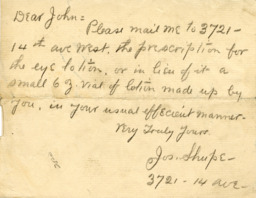 Dear John =
Please mail me to 3721-
14th ave West, the prescription for
the eye lotion, or in lieu of it a
small 6 z vial of lotion made up by
you, in your usual efficient manner.
Very Truly Yours.
Jos. Shupe -
3721 - 14 ave -